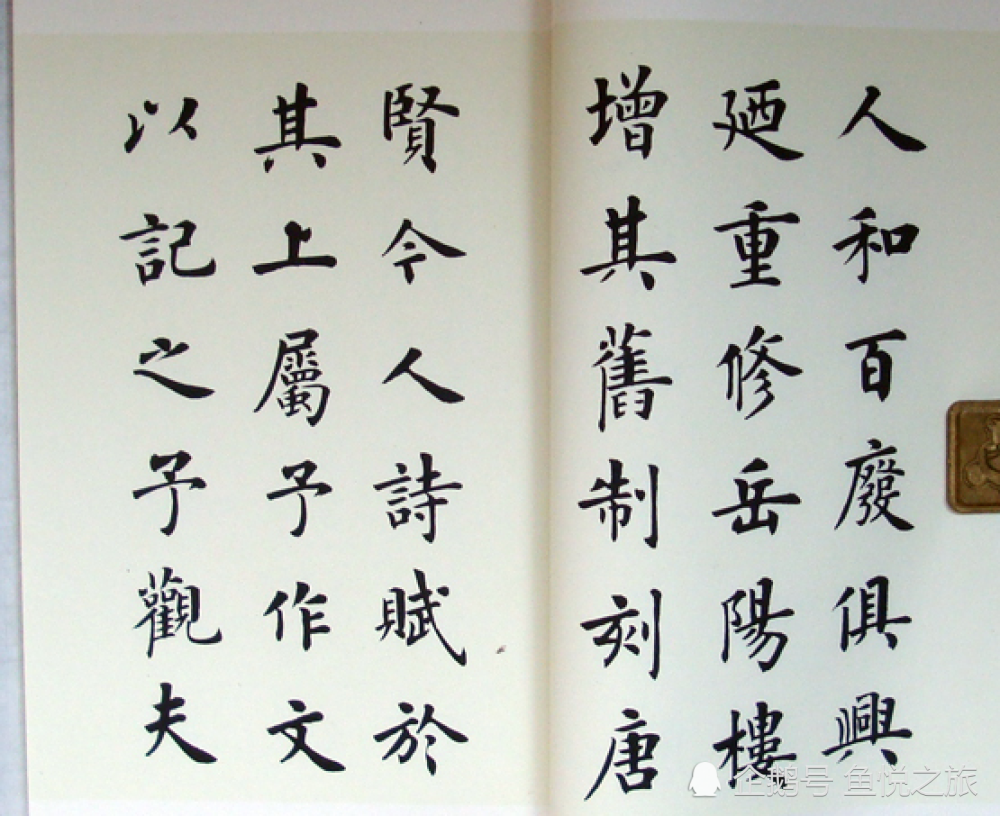 人和百廢俱興
廼重修岳陽樓
增其舊制刻唐
賢今人詩賦於
其上屬予作文
以記之予觀夫
企鹅号 鱼悦之旅